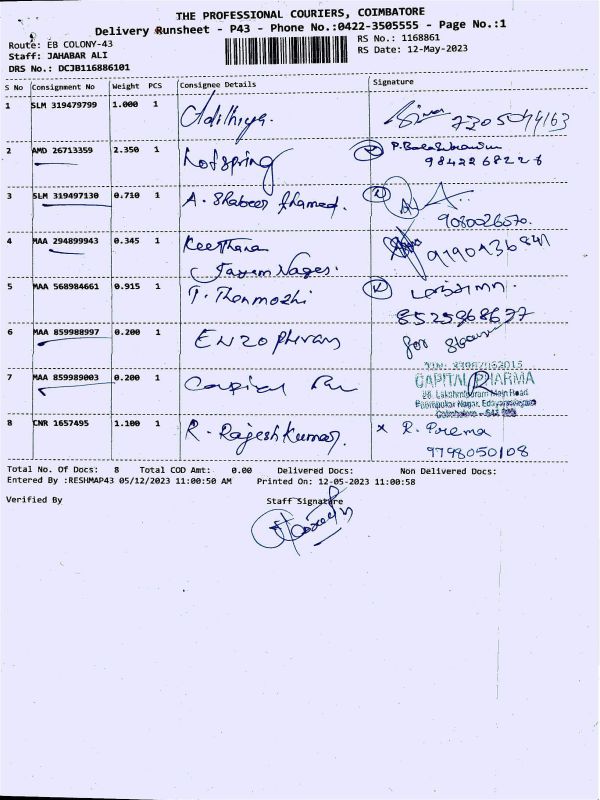 THE PROFESSIONAL COURIERS, COIMBATORE
Delivery Runsheet - P43 - Phone No.:0422-3505555 - Page No.:1
Route: EB COLONY-43
RS No.: 1168861
Staff: JAHABAR ALI
RS Date: 12-May-2023
DRS No.: DCJB116886101
S No Consignment No Weight PCS Consignee Details Signature
1 SLM 319479799 1.000 1 Adithiya.
2 AMD 26713359 2.350 1 Hotspring
9842268228
3 SLM 319497130 0.710 1 A. Shabeer Ahamed.
4 MAA 294899943 0.345 1 Keerthana
5 MAA 568984661 0.915 1 T. Thenmozhi
8525968637
6 MAA 859988997 0.200 1 Enzo
for
7 MAA 859989003 0.200 1 Capital
CAPITAL PHARMA
8 CNR 1657495 1.100 1 R. Rajesh Kumar. x R. Prema
9798050108
Total No. Of Docs: 8 Total COD Amt: 0.00 Delivered Docs: Non Delivered Docs:
Entered By :RESHMAP43 05/12/2023 11:00:50 AM Printed On: 12-05-2023 11:00:58
Verified By Staff Signature